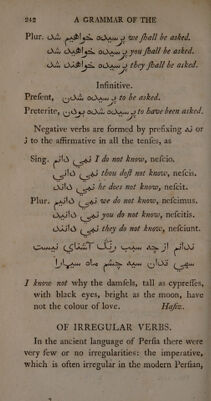 242 A GRAMMAR OF THE
Plur. پرسیده خواهیم شد we ſhall be asked.
پرسیده خواهید شد you ſhall be asked.
پرسیده خواهند شد they ſhall be asked.
Infinitive.
Preſent, پرسیده شدن to be asked.
Preterite, پرسیده شده بودن to have been asked.
Negative verbs are formed by prefixing نه or
ن to the affirmative in all the tenſes, as
Sing. نمی دانم I do not know, neſcio.
نمی دانی thou doſt not know, neſcis.
نمی داند he does not know, neſcit.
Plur. نمی دانیم we do not know, neſcimus.
نمی دانید you do not know, neſcitis.
نمی دانند they do not know, neſciunt.
ندانم از چه سبب رنگ آشنای نیست
سهی قدان سیه چشم ماه سیمارا
I know not why the damſels, tall as cypreſſes,
with black eyes, bright as the moon, have
not the colour of love. Hafiz.
OF IRREGULAR VERBS.
In the ancient language of Perſia there were
very few or no irregularities: the imperative,
which is often irregular in the modern Perſian,